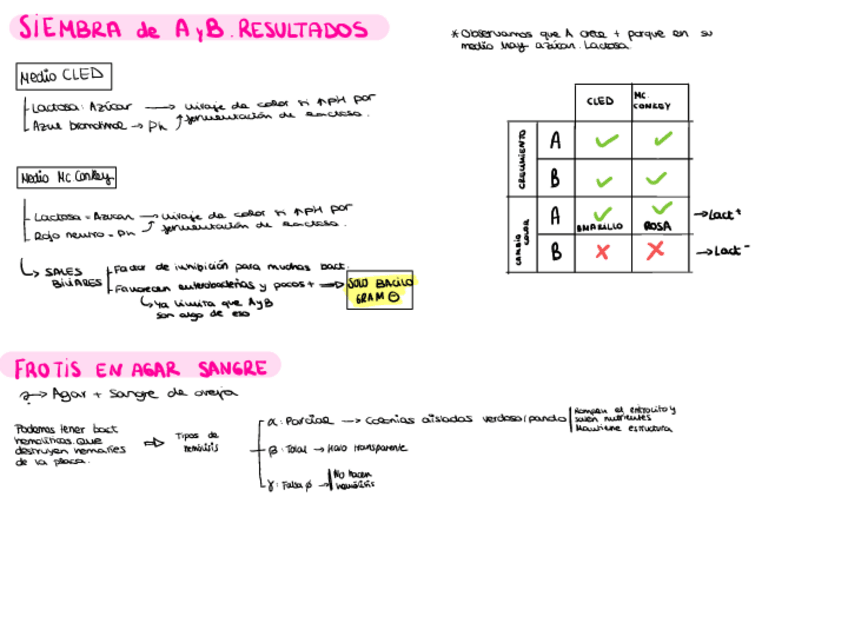 SIEMBRA de A y B. RESULTADOS
Medio CLED
Lactosa: Azúcar → viraje de color si ↑pH por
Azul bromotimol → Ph ↑ fermentación de lactosa.
Medio Mc Conkey
Lactosa = Azucar → viraje de color si ↑pH por
Rojo neutro = Ph ↑ fermentación de lactosa.
↳ SALES
BILIARES
Factor de inhibición para muchas bact.
Favorecen enterobacterias y pocos + ⇒ SOLO BACILO
GRAM ⊖
↳ Ya limita que A y B
son algo de eso
* Observamos que A crece + porque en su
medio hay azúcar. Lactosa.
CLED
MC.
CONKEY
CRECIMIENTO
A ✓ ✓
B ✓ ✓
CAMBIO
COLOR
A ✓ ✓
AMARILLO ROSA → Lact +
B X X → Lact -
FROTIS EN AGAR SANGRE
→ Agar + Sangre de oveja
Podemos tener bact
hemolíticas. Que
destruyen hematies
de la placa.
⇒ Tipos de
hemólisis
α: Parcial → Colonias aisladas verdoso/pardo
Rompen el eritrocito y
salen nutrientes
Mantiene estructura
β: Total → Halo transparente
γ: Falsa ϕ → No hacen
hemólisis